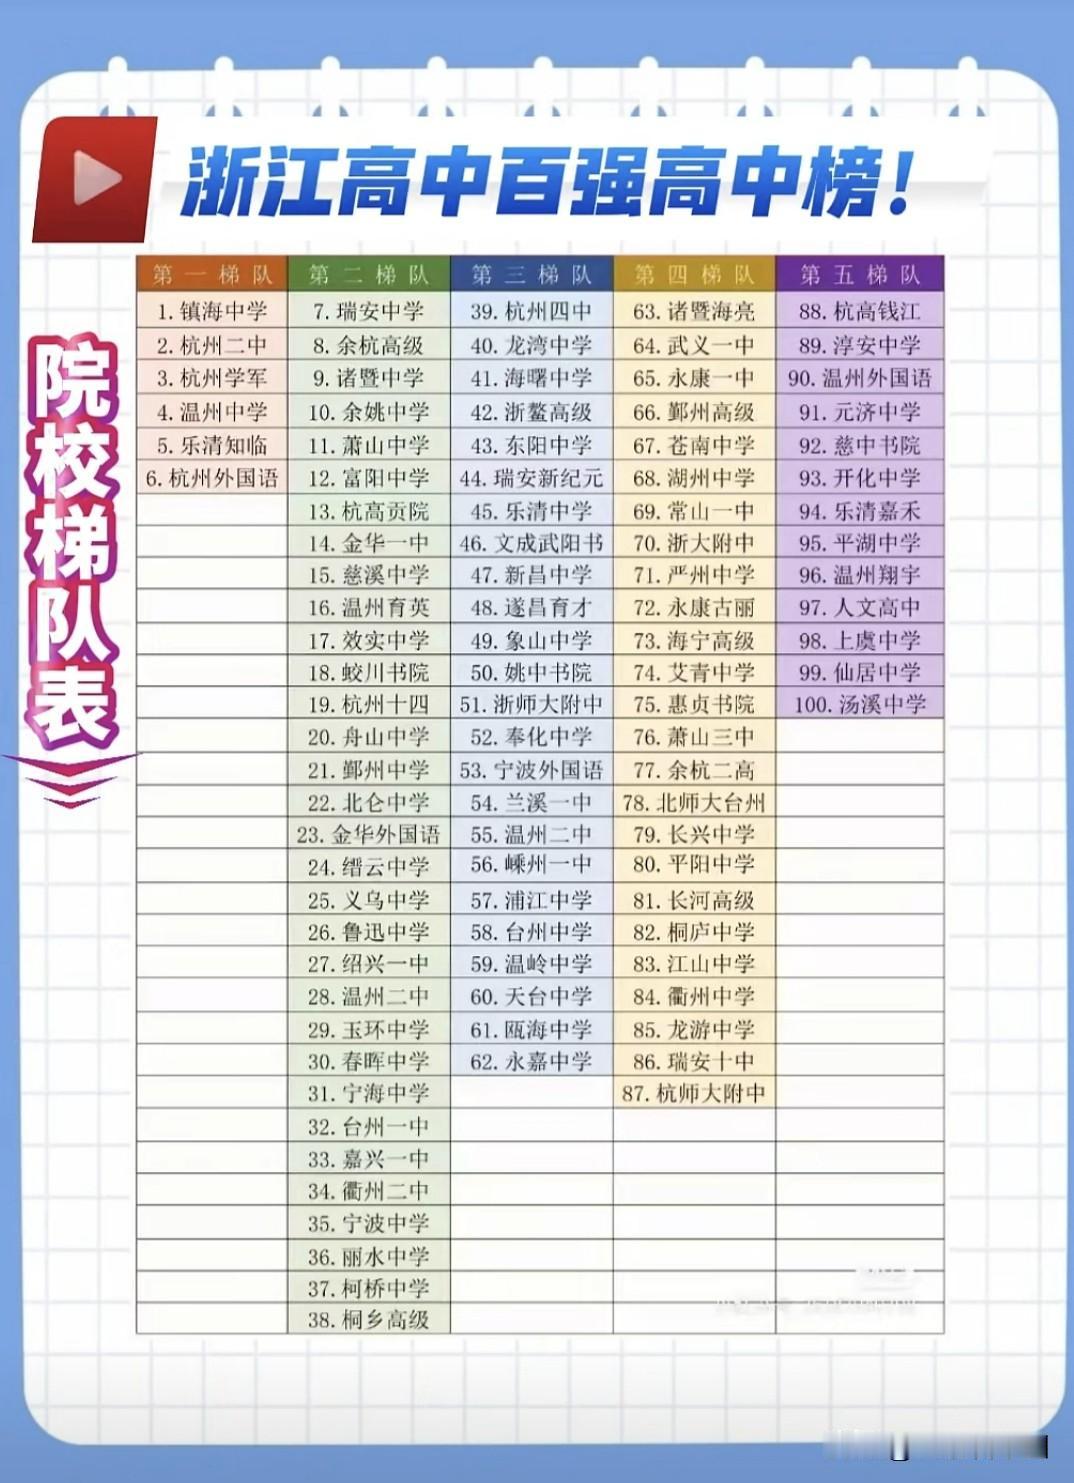 浙江高中百强高中榜!
院校梯队表
第一梯队
1. 镇海中学
2. 杭州二中
3. 杭州学军
4. 温州中学
5. 乐清知临
6. 杭州外国语
第二梯队
7. 瑞安中学
8. 余杭高级
9. 诸暨中学
10. 余姚中学
11. 萧山中学
12. 富阳中学
13. 杭高贡院
14. 金华一中
15. 慈溪中学
16. 温州育英
17. 效实中学
18. 蛟川书院
19. 杭州十四
20. 舟山中学
21. 鄞州中学
22. 北仑中学
23. 金华外国语
24. 缙云中学
25. 义乌中学
26. 鲁迅中学
27. 绍兴一中
28. 温州二中
29. 玉环中学
30. 春晖中学
31. 宁海中学
32. 台州一中
33. 嘉兴一中
34. 衢州二中
35. 宁波中学
36. 丽水中学
37. 柯桥中学
38. 桐乡高级
第三梯队
39. 杭州四中
40. 龙湾中学
41. 海曙中学
42. 浙鳌高级
43. 东阳中学
44. 瑞安新纪元
45. 乐清中学
46. 文成武阳书
47. 新昌中学
48. 遂昌育才
49. 象山中学
50. 姚中书院
51. 浙师大附中
52. 奉化中学
53. 宁波外国语
54. 兰溪一中
55. 温州二中
56. 嵊州一中
57. 浦江中学
58. 台州中学
59. 温岭中学
60. 天台中学
61. 瓯海中学
62. 永嘉中学
第四梯队
63. 诸暨海亮
64. 武义一中
65. 永康一中
66. 鄞州高级
67. 苍南中学
68. 湖州中学
69. 常山一中
70. 浙大附中
71. 严州中学
72. 永康古丽
73. 海宁高级
74. 艾青中学
75. 惠贞书院
76. 萧山三中
77. 余杭二高
78. 北师大台州
79. 长兴中学
80. 平阳中学
81. 长河高级
82. 桐庐中学
83. 江山中学
84. 衢州中学
85. 龙游中学
86. 瑞安十中
87. 杭师大附中
第五梯队
88. 杭高钱江
89. 淳安中学
90. 温州外国语
91. 元济中学
92. 慈中书院
93. 开化中学
94. 乐清嘉禾
95. 平湖中学
96. 温州翔宇
97. 人文高中
98. 上虞中学
99. 仙居中学
100. 汤溪中学